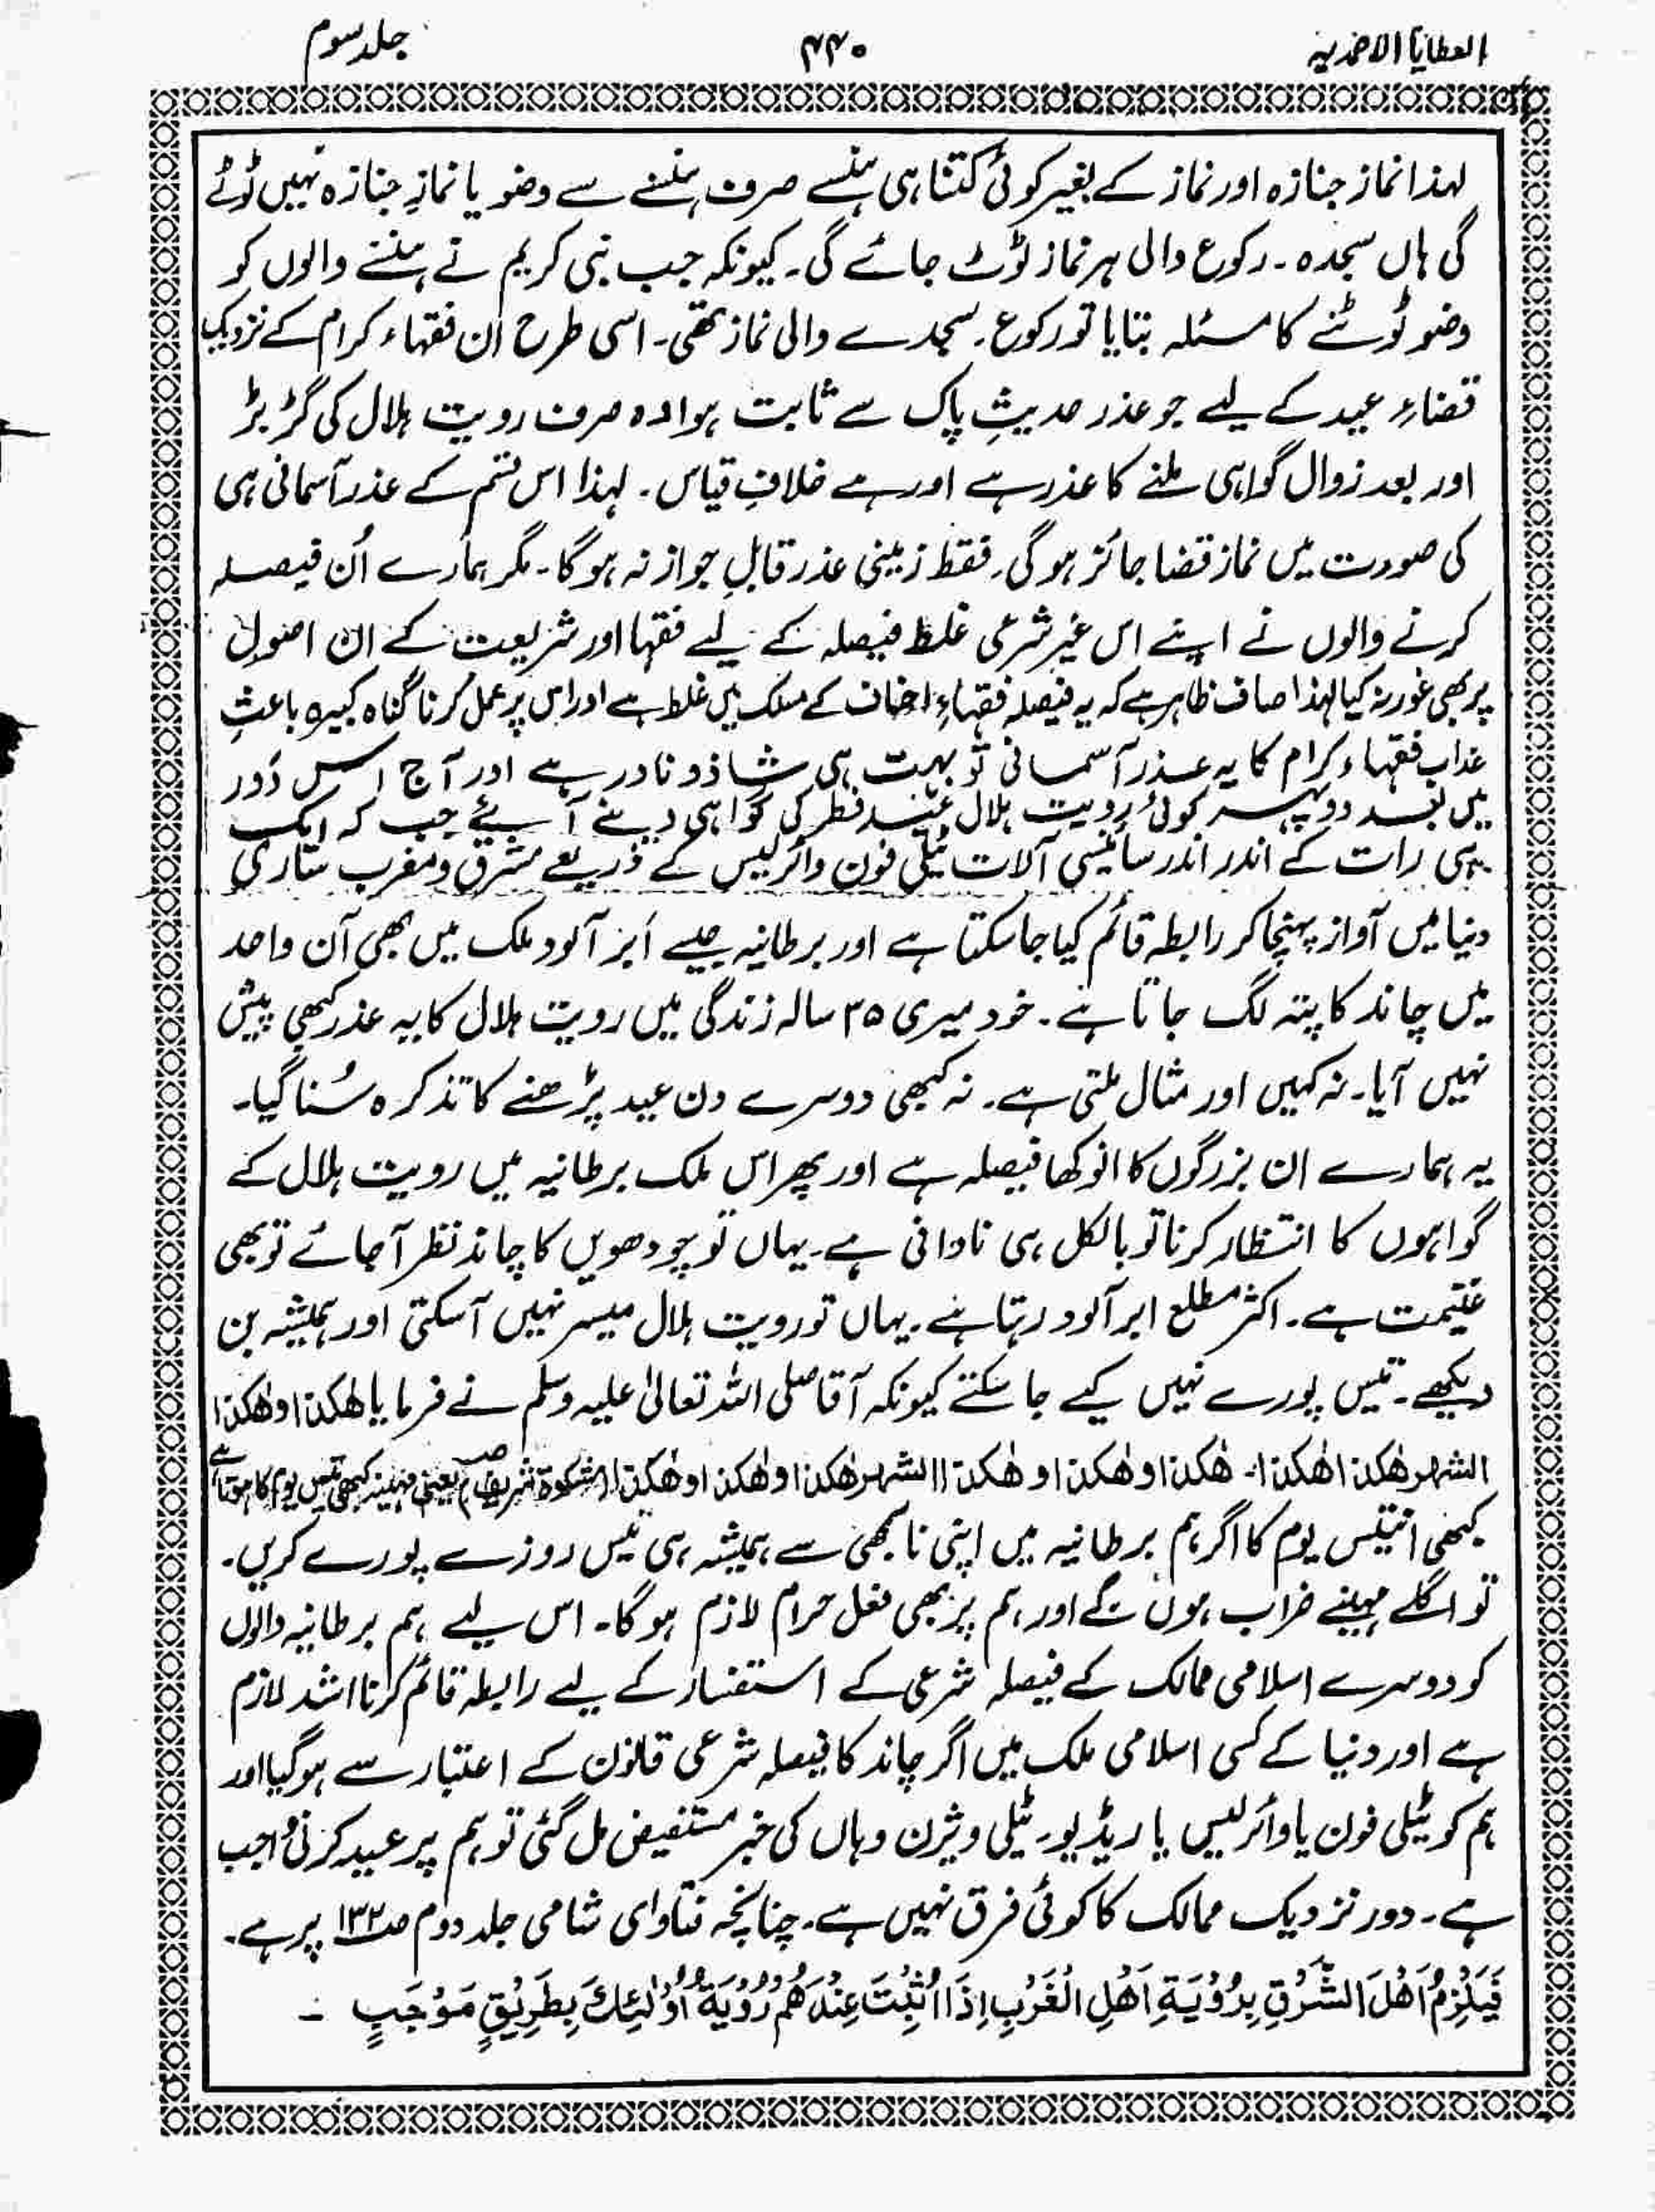 العطایا الاحمدیہ
۴۴۰
جلد سوم
لہذا نماز جنازہ اور نماز کے بغیر کوئی کتنا ہی ہنسے صرف ہنسنے سے وضو یا نمازِ جنازہ نہیں ٹوٹے
گی ہاں سجدہ ۔ رکوع والی ہر نماز ٹوٹ جائے گی۔ کیونکہ جب نبی کریم نے ہنسنے والوں کو
وضو ٹوٹنے کا مسئلہ بتایا تو رکوع۔ سجدے والی نماز تھی۔ اسی طرح اُن فقہاء کرام کے نزدیک
قضاءِ عید کے لیے جو عذر حدیثِ پاک سے ثابت ہوا وہ صرف رویت ہلال کی گڑبڑ
اور بعد زوال گواہی ملنے کا عذر ہے اور ہے خلافِ قیاس۔ لہذا اس قسم کے عذر آسمانی ہی
کی صورت میں نماز قضا جائز ہو گی۔ فقط زمینی عذر قابلِ جواز نہ ہو گا۔ مگر ہمارے اُن فیصلہ
کرنے والوں نے اپنے اس غیر شرعی غلط فیصلہ کے لیے فقہا اور شریعت کے ان اصول
پر بھی غور نہ کیا لہذا صاف ظاہر ہے کہ یہ فیصلہ فقہاءِ احناف کے مسلک میں غلط ہے اور اس پر عمل کرنا گناہ کبیرہ باعثِ
عذاب فقہاء کرام کا یہ عذر آسمانی تو بہت ہی شاذ و نادر ہے اور آج اس دَور
میں بعد دوپہر کوئی رویت ہلال عید فطر کی گواہی دینے آئے جب کہ ایک
ہی رات کے اندر اندر سائنسی آلات ٹیلی فون وائرلیس کے ذریعے مشرق و مغرب ساری
دنیا میں آواز پہنچا کر رابطہ قائم کیا جا سکتا ہے اور برطانیہ جیسے اَبر آلود ملک میں بھی آن واحد
میں چاند کا پتہ لگ جاتا ہے۔ خود میری ۳۵ سالہ زندگی میں رویت ہلال کا یہ عذر کبھی پیش
نہیں آیا۔ نہ کہیں اور مثال ملتی ہے۔ نہ کبھی دوسرے دن عید پڑھنے کا تذکرہ سُنا گیا۔
یہ ہمارے ان بزرگوں کا انوکھا فیصلہ ہے اور پھر اس ملک برطانیہ میں رویت ہلال کے
گواہوں کا انتظار کرنا تو بالکل ہی نادانی ہے۔ یہاں تو چودھویں کا چاند نظر آ جائے تو بھی
غنیمت ہے۔ اکثر مطلع ابر آلود رہتا ہے۔ یہاں تو رویت ہلال میسر نہیں آ سکتی اور ہمیشہ بن
دیکھے۔ تیس پورے نہیں کیے جا سکتے کیونکہ آقا صلی اللہ تعالیٰ علیہ وسلم نے فرمایا ھٰکذا و ھٰکذا
الشہر ھٰکذا ھٰکذا۔ ھٰکذا و ھٰکذا و ھٰکذا الشہر ھٰکذا و ھٰکذا و ھٰکذا (مشکوٰۃ شریف صـ) یعنی مہینہ کبھی تیس یوم کا ہوتا ہے
کبھی انتیس یوم کا اگر ہم برطانیہ میں اپنی نا سمجھی سے ہمیشہ ہی تیس روزے پورے کریں۔
تو اگلے مہینے خراب ہوں گے اور ہم پر بھی فعل حرام لازم ہو گا۔ اس لیے ہم برطانیہ والوں
کو دوسرے اسلامی ممالک کے فیصلہ شرعی کے استفسار کے لیے رابطہ قائم کرنا اشد لازم
ہے اور دنیا کے کسی اسلامی ملک میں اگر چاند کا فیصلہ شرعی قانون کے اعتبار سے ہو گیا اور
ہم کو ٹیلی فون یا وائرلیس یا ریڈیو۔ ٹیلی ویژن وہاں کی خبر مستفیض مل گئی تو ہم پر عید کرنی واجب
ہے۔ دور نزدیک ممالک کا کوئی فرق نہیں ہے۔ چنانچہ فتاوای شامی جلد دوم صـ۱۳۲ پر ہے۔
فَیَلْزِمُ اَھْلَ الشَّرْقِ بِرُوْیَۃِ اَھْلِ الْغَرْبِ اِذَا اثْبِتَ عِنْدَھُمْ رُوْیَۃُ اُوْلٰئِكَ بِطَرِیْقٍ مَوْجَبٍ ۔